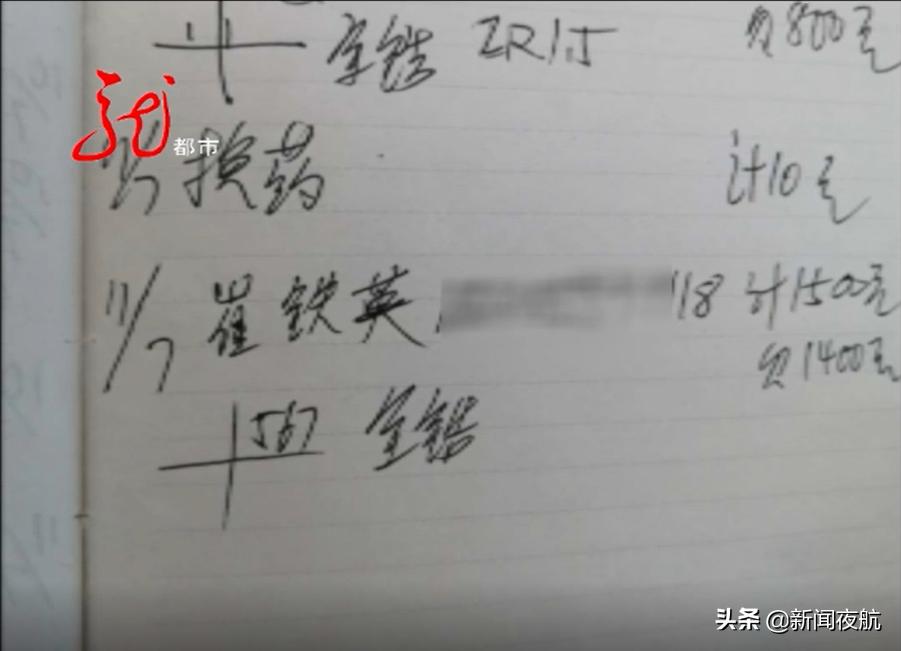 11 全锆 ZR1.5 欠800元
龙 都市
换药 计10元
11/7 崔铁英 118 计1500元
欠1400元
567 全锆
头条 @新闻夜航